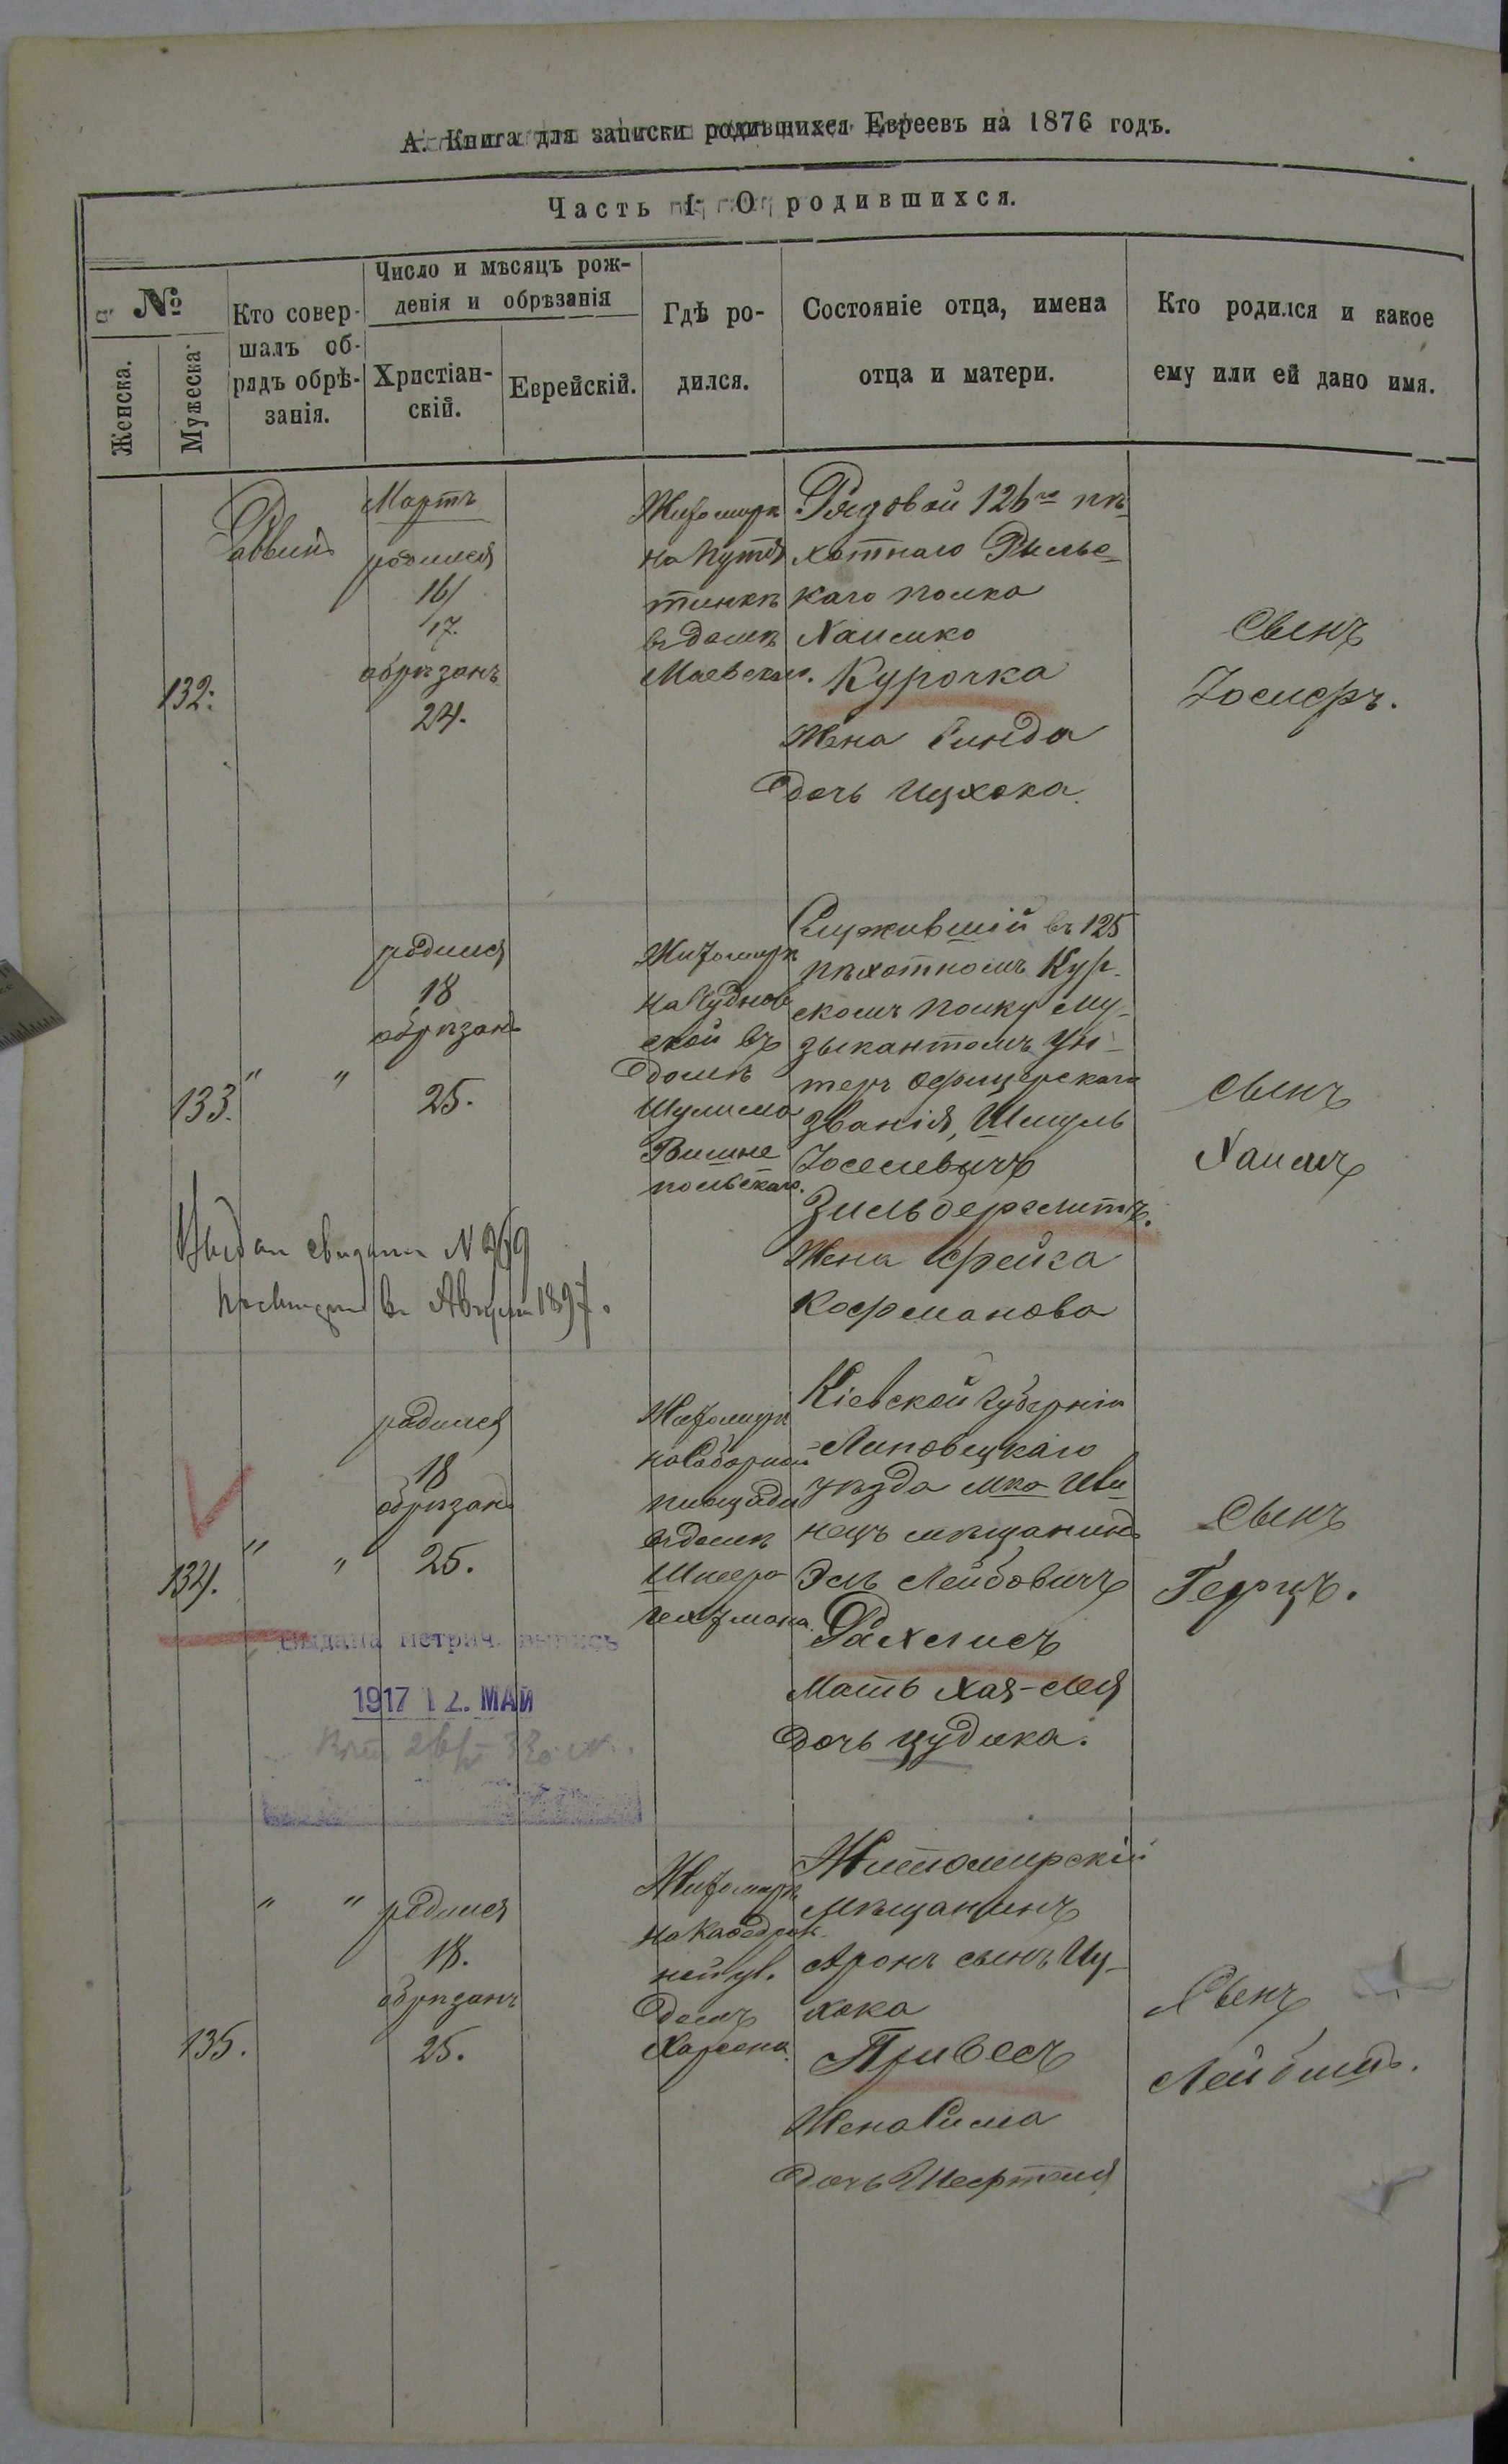 А. Книга для записки родившихся Евреевъ на 1876 годъ.
Часть I. О родившихся.
№
Женска.
Мужеска.
Кто совер-
шалъ об-
рядъ обрѣ-
занія.
Число и мѣсяцъ рож-
денія и обрѣзанія
Христіан-
скій.
Еврейскій.
Гдѣ ро-
дился.
Состояніе отца, имена
отца и матери.
Кто родился и какое
ему или ей дано имя.
132.
Раввинъ
Мартъ
родился
16/
17.
обрѣзанъ
24.
Житомирѣ
на Путя
тинкѣ
въ домѣ
Маевскаго.
Рядовой 126го пѣ
хотнаго Рыльс
каго полка
Хаимко
Курочка
Жена Синда
дочь Ицхока
Сынъ
Іосифъ.
133.
" "
родился
18
обрѣзанъ
25.
Житомирѣ
на Чуднов
ской въ
домѣ
Шулима
Вишне
польскаго.
Служившій въ 125
пѣхотномъ Кур-
скомъ полку му-
зыкантомъ Ун-
теръ офицерскаго
званія, Шмуль
Іоселевичъ
Зильбершмитъ.
Жена Фейга
Кофманова
Сынъ
Хаимъ
Августѣ 1897.
134.
" "
родился
18
обрѣзанъ
25.
Житомирѣ
на Соборной
площади
въ домѣ
Кіевской Губерніи
Липовецкаго
уѣзда мко Ив
нецъ мѣщанинъ
Эль Лейбовичъ
Рахлисъ
Мать Хая-Лея
дочь Цудика.
Сынъ
Герцъ.
Выдана метрич. выпись
1917 12. МАЙ
135.
" "
родился
18.
обрѣзанъ
25.
Житомирѣ
на Кафедраль
ной ул.
домъ
Житомирскій
Мѣщанинъ
Аронъ сынъ Иц-
хока
Привесъ
Жена Сима
дочь Шефтеля
Сынъ
Лейбишъ.